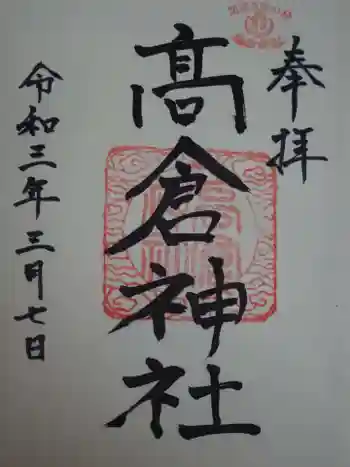 奉拝
髙倉神社
令和三年三月七日